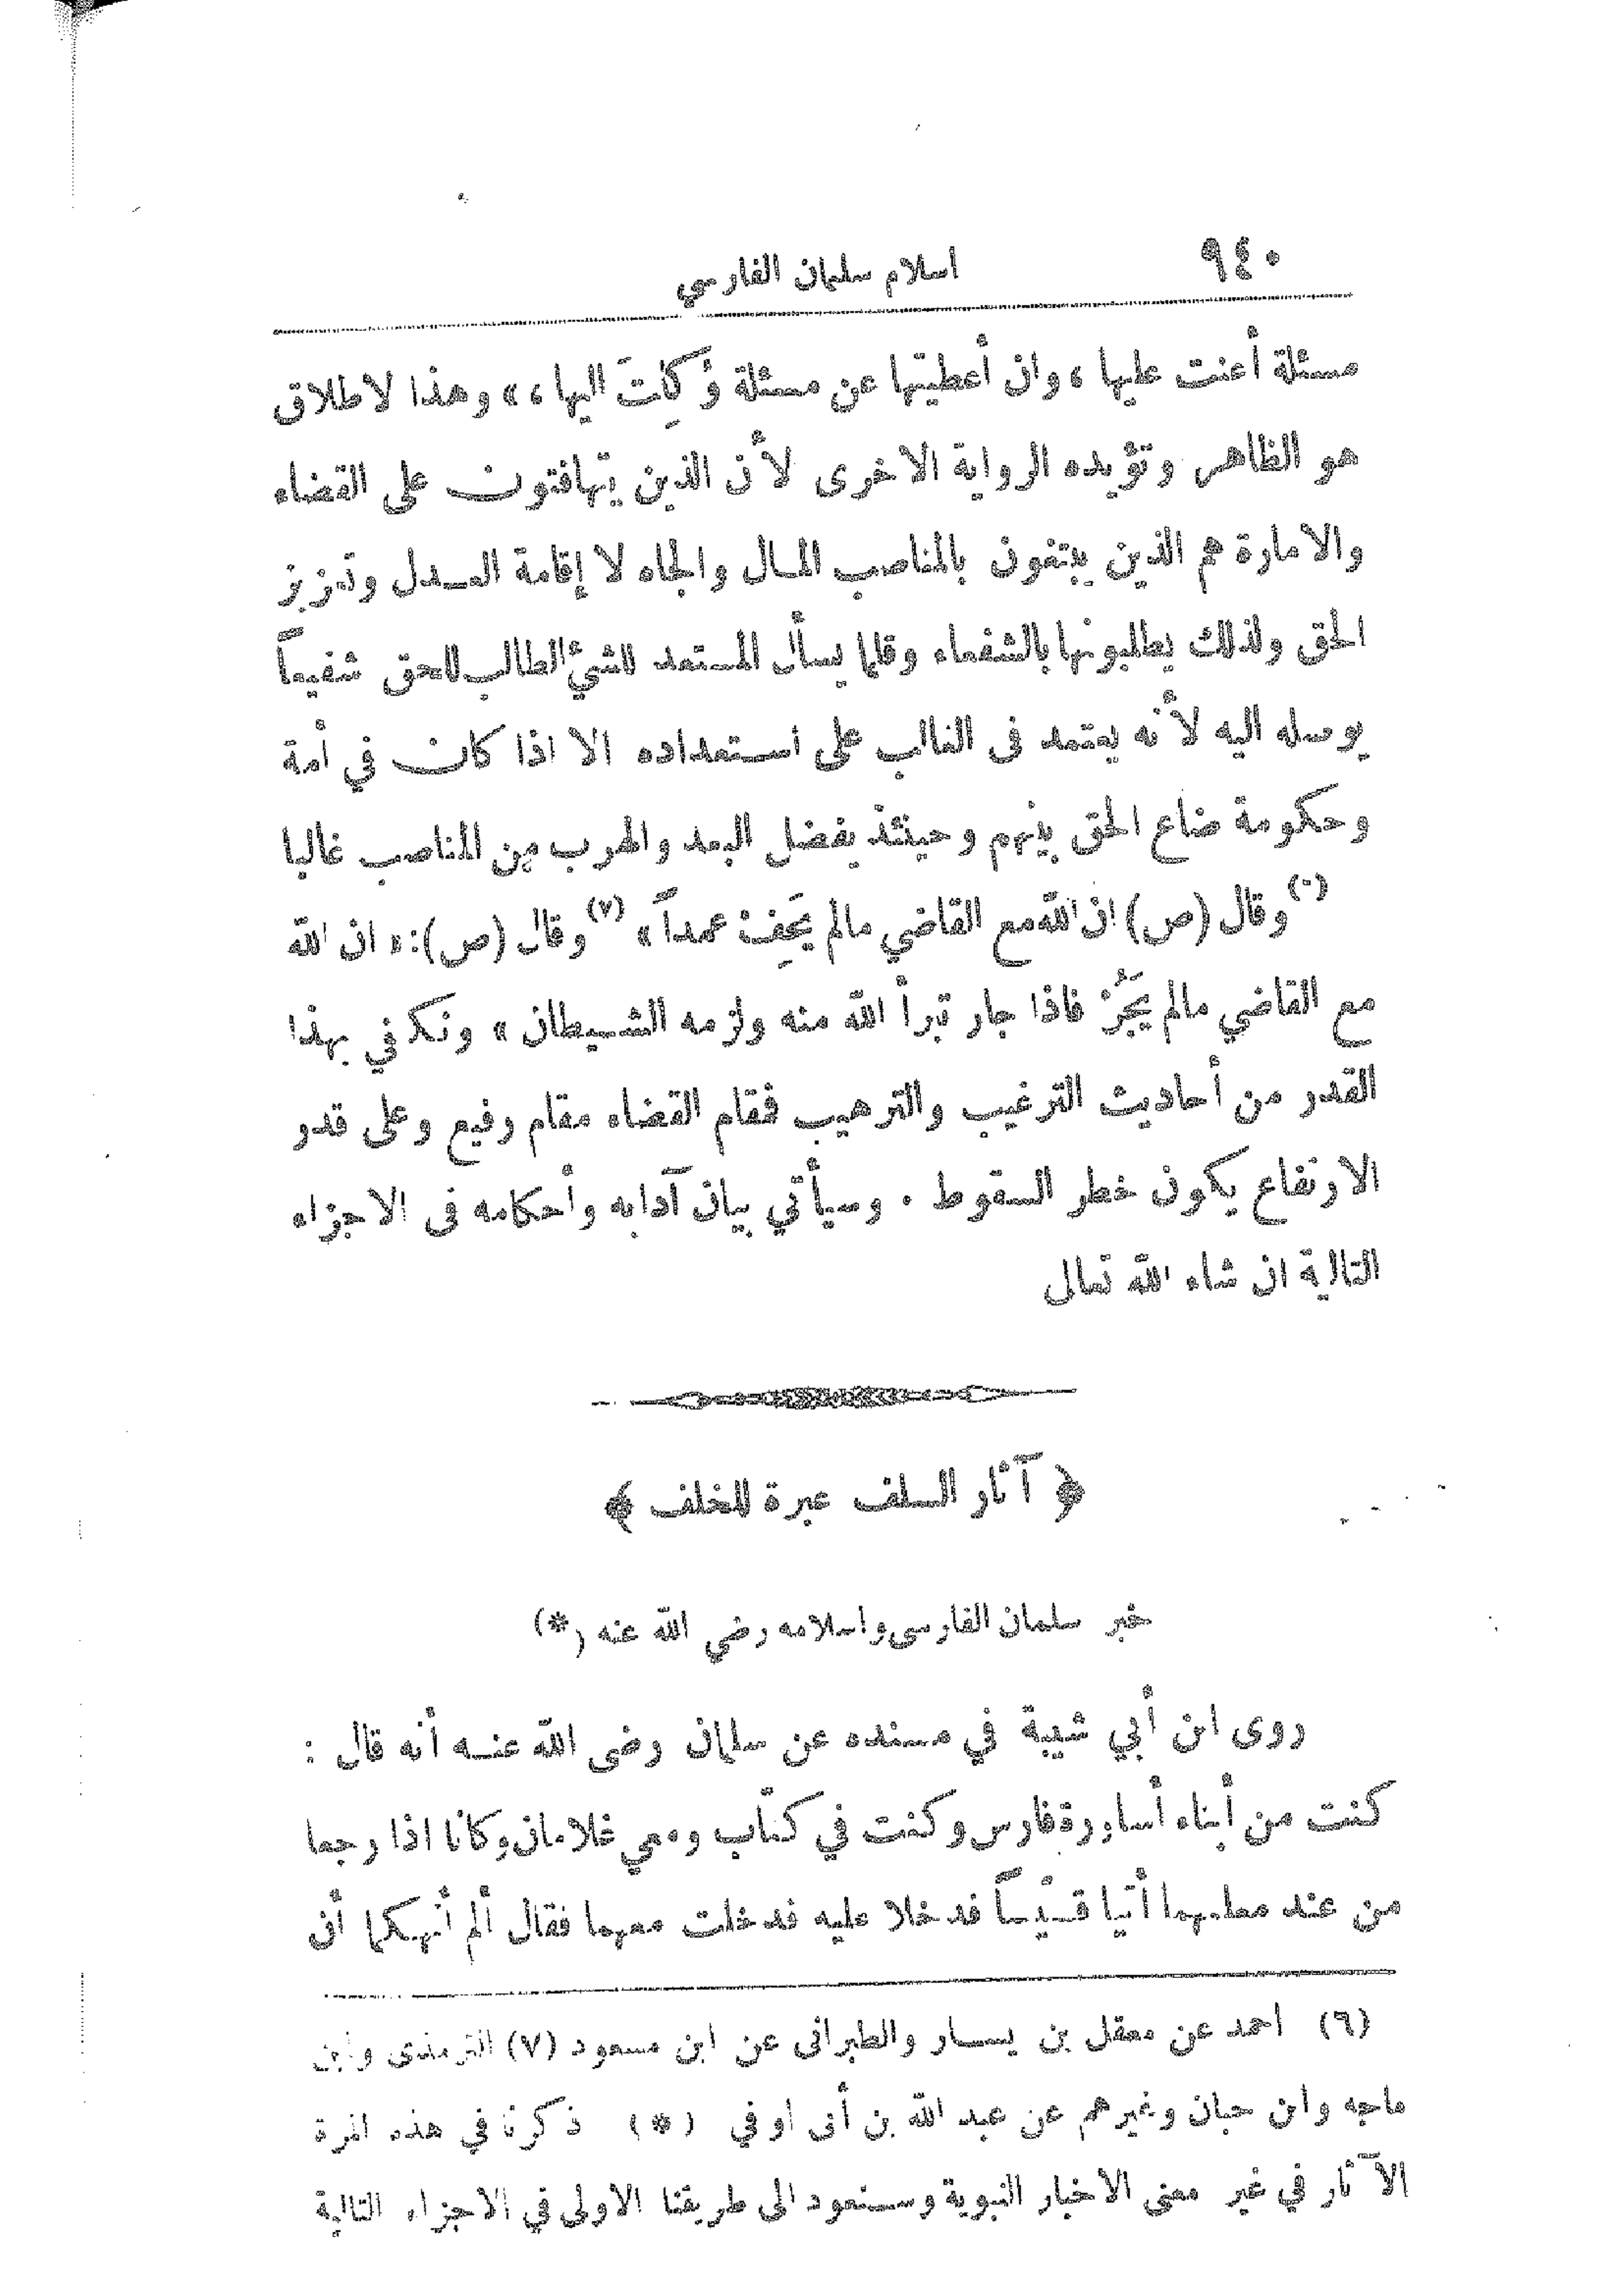 ٩٤٠ اسلام سلمان الفارسي
مسئلة أعنت عليها، وان أعطيتها عن مسئلة وُكِلتَ اليها،» وهذا لاطلاق
هو الظاهر وتؤيده الرواية الاخرى لأن الذين يتهافتون على القضاء
والامارة هم الذين يبتغون بالمناصب المال والجاه لا إقامة العدل وتعزيز
الحق ولذلك يطلبونها بالشفعاء وقلما يسأل المستعد للشيء الطالب للحق شفيعاً
يوصله اليه لأنه يعتمد في الغالب على استعداده الا اذا كان في أمة
وحكومة ضاع الحق بينهم وحينئذ يفضل البعد والهرب من المناصب غالبا
(٦) وقال (ص) ان الله مع القاضي مالم يَحِفْ عمداً» (٧) وقال (ص): « ان الله
مع القاضي مالم يَجُرْ فاذا جار تبرأ الله منه ولزمه الشيطان » ونكتفي بهذا
القدر من أحاديث الترغيب والترهيب فمقام القضاء مقام رفيع وعلى قدر
الارتفاع يكون خطر السقوط . وسيأتي بيان آدابه وأحكامه في الاجزاء
التالية ان شاء الله تعالى
﴿ آثار السلف عبرة للخلف ﴾
خبر سلمان الفارسي واسلامه رضي الله عنه (*)
روى ابن أبي شيبة في مسنده عن سلمان رضي الله عنه أنه قال :
كنت من أبناء أساورة فارس وكنت في كتّاب ومعي غلامان وكانا اذا رجعا
من عند معلمهما أتيا قسّيساً فدخلا عليه فدخلت معهما فقال ألم أنهكما أن
(٦) احمد عن معقل بن يسار والطبراني عن ابن مسعود (٧) الترمذي وابن
ماجه وابن حبان وغيرهم عن عبد الله بن أبي اوفي (*) ذكرنا في هذه المرة
الآثار في غير معنى الاخبار النبوية وسنعود الى طريقنا الاولى في الاجزاء التالية